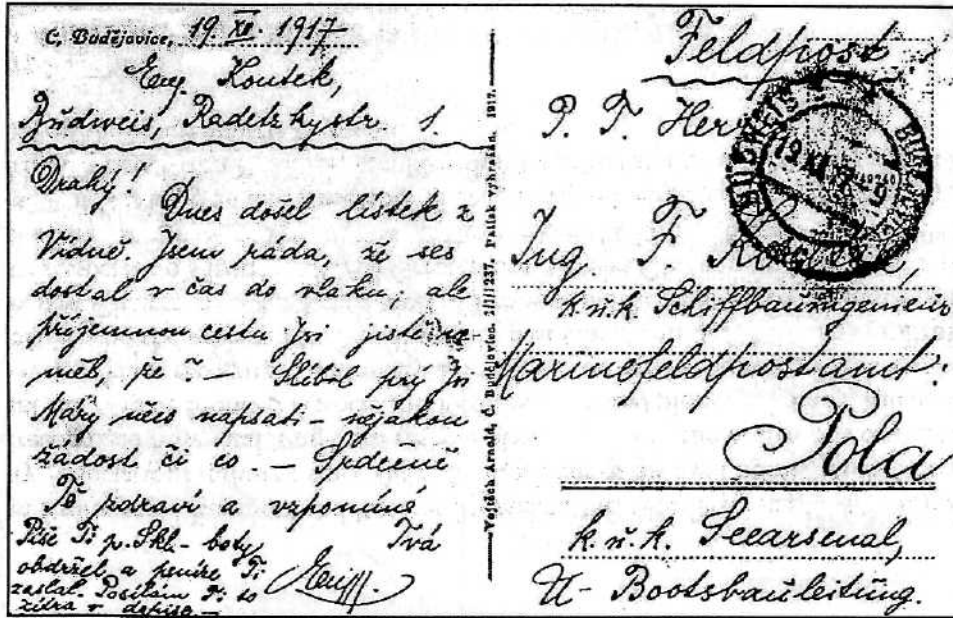 Č. Budějovice, 19. XI. 1917
Eug. Koutek,
Budweis, Radetzkystr. 1.
Drahý!
Dnes došel lístek z
Vídně. Jsem ráda, že ses
dostal v čas do vlaku; ale
příjemnou cestu jsi jistě ne
měl, že? — Slíbil prý jsi
Máry něco napsati - nějakou
žádost či co. — Srdečně
Tě zdraví a vzpomíná
Tvá
Píše Ti p. Skl. - boty
obdržel a peníze Ti
zaslal. Posílám Ti to
zítra v dopise. —
Vojtěch Arnold, Č. Budějovice. 2/III/237. Patisk vyhrazen. 1917.
Feldpost.
P. T. Herr
BUDWEIS
Ing. F.
k. u. k. Schiffbauingenieur
Marinefeldpostamt:
Pola
k. u. k. Seearsenal,
U-Bootsbauleitung.